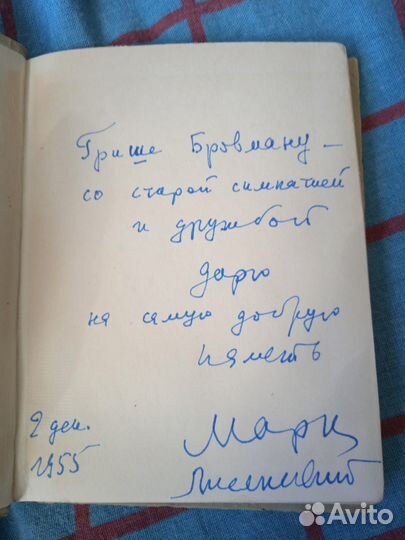 Грише Бровману —
со старой симпатией
и дружбой
дарю
на самую добрую
память
2 дек.
1955
Марк
Лисянский
Avito